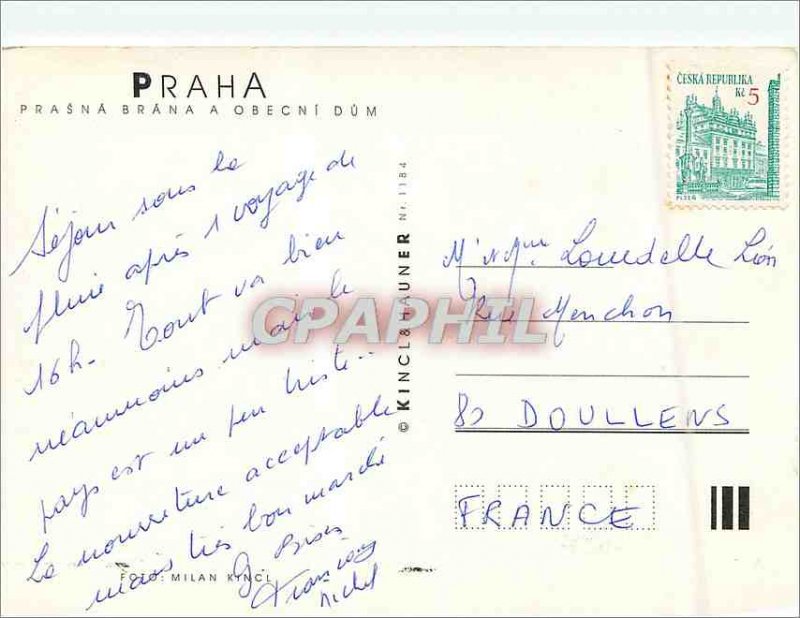 PRAHA
PRAŠNÁ BRÁNA A OBECNÍ DŮM
Séjour sous la
pluie après 1 voyage de
16h - Tout va bien
néanmoins mais le
pays est un peu triste...
La nourriture acceptable
mais très bon marché
Bises
Michel
FOTO: MILAN KINCL
© KINCL & HAUNER Nr. 1184
CPAPHIL
ČESKÁ REPUBLIKA
Kč 5
PLZEŇ
M Loudelle Léon
Rue Menchon
80 DOULLENS
FRANCE